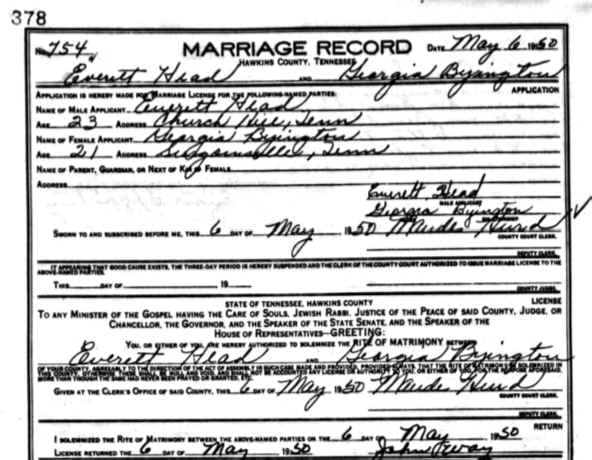 378
No. 754 MARRIAGE RECORD DATE May 6 1950
HAWKINS COUNTY, TENNESSEE
Everett Head AND Georgia Byington
APPLICATION IS HEREBY MADE FOR MARRIAGE LICENSE FOR THE FOLLOWING-NAMED PARTIES: APPLICATION
NAME OF MALE APPLICANT Everett Head
AGE 23 ADDRESS Church Hill, Tenn
NAME OF FEMALE APPLICANT Georgia Byington
AGE 21 ADDRESS Surgoinsville, Tenn
NAME OF PARENT, GUARDIAN, OR NEXT OF KIN OF FEMALE
ADDRESS
Everett Head
MALE APPLICANT
Georgia Byington
SWORN TO AND SUBSCRIBED BEFORE ME, THIS 6 DAY OF May 1950 Maude Hurd
COUNTY COURT CLERK.
DEPUTY CLERK.
IT APPEARING THAT GOOD CAUSE EXISTS, THE THREE-DAY PERIOD IS HEREBY SUSPENDED AND THE CLERK OF THE COUNTY COURT AUTHORIZED TO ISSUE MARRIAGE LICENSE TO THE
ABOVE-NAMED PARTIES.
THIS DAY OF 19
STATE OF TENNESSEE, HAWKINS COUNTY LICENSE
TO ANY MINISTER OF THE GOSPEL HAVING THE CARE OF SOULS, JEWISH RABBI, JUSTICE OF THE PEACE OF SAID COUNTY, JUDGE, OR
CHANCELLOR, THE GOVERNOR, AND THE SPEAKER OF THE STATE SENATE, AND THE SPEAKER OF THE
HOUSE OF REPRESENTATIVES—GREETING:
YOU, OR EITHER OF YOU, ARE HEREBY AUTHORIZED TO SOLEMNIZE THE RITE OF MATRIMONY BETWEEN
Everett Head AND Georgia Byington
OF YOUR COUNTY, AGREEABLY TO THE DIRECTION OF THE ACT OF ASSEMBLY IN SUCH CASE MADE AND PROVIDED, PROVIDED ALWAYS, THAT THE RITE OF MATRIMONY BE SOLEMNIZED IN
THIS COUNTY, OTHERWISE THESE SHALL BE NULL AND VOID, AND SHALL NOT BE ACCOUNTED ANY LICENSE OR AUTHORITY TO YOU, OR EITHER OF YOU, FOR THE PURPOSE
MORE THAN THOUGH THE SAME HAD NEVER BEEN PRAYED OR GRANTED, ETC.
GIVEN AT THE CLERK'S OFFICE OF SAID COUNTY, THIS 6 DAY OF May 1950 Maude Hurd
COUNTY COURT CLERK.
DEPUTY CLERK.
RETURN
I SOLEMNIZED THE RITE OF MATRIMONY BETWEEN THE ABOVE-NAMED PARTIES ON THE 6 DAY OF May 1950
LICENSE RETURNED THE 6 DAY OF May 1950 John